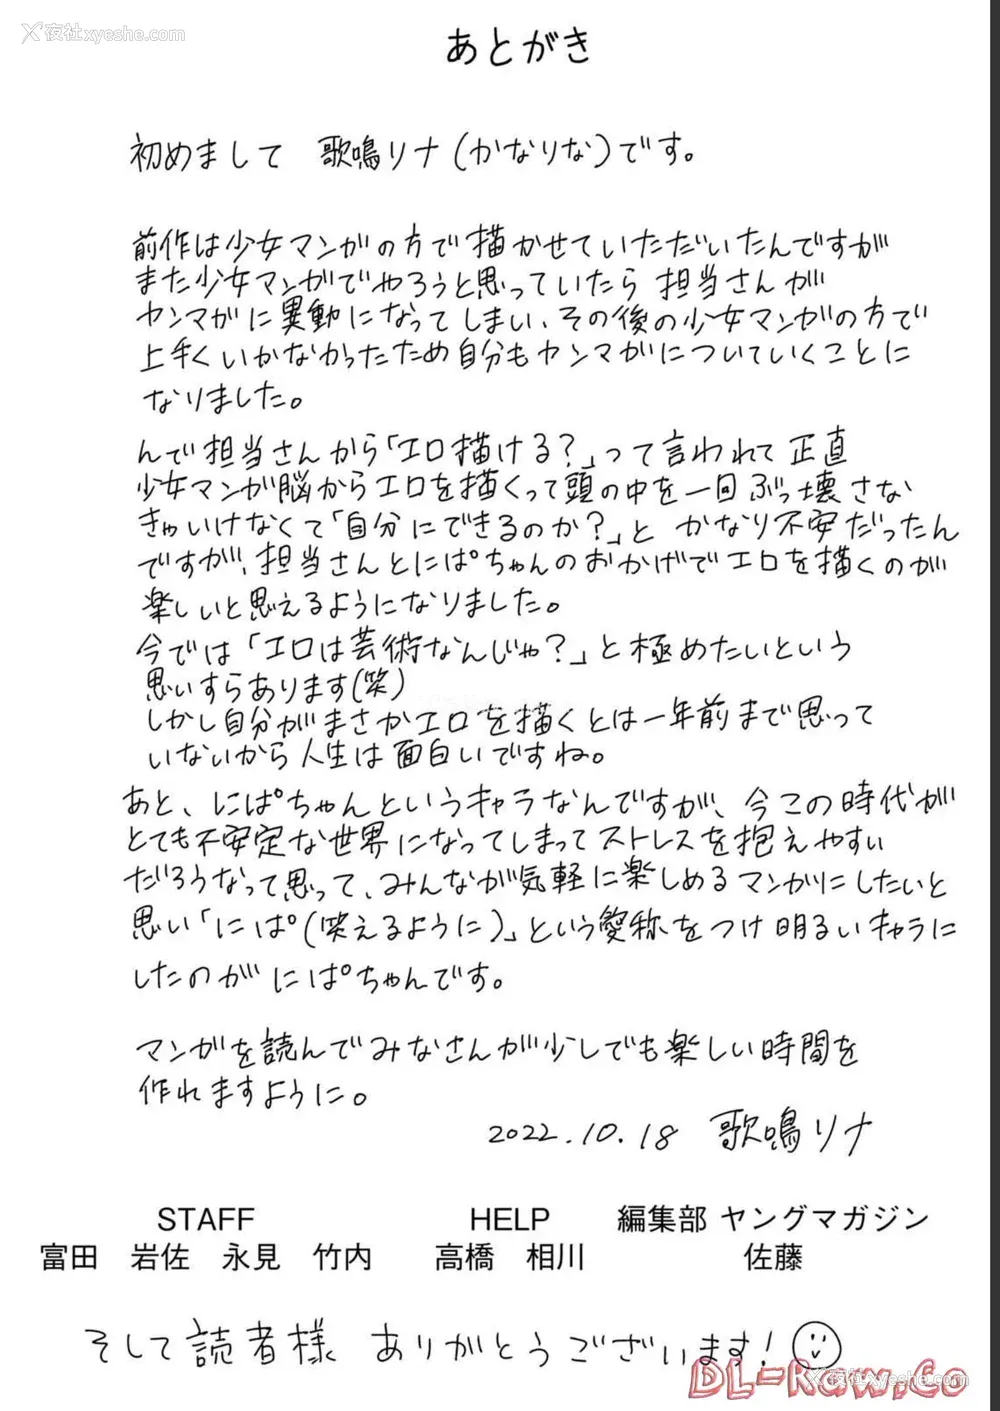 夜社xyeshe.com
あとがき
初めまして 歌鳴リナ(かなりな)です。
前作は少女マンガの方で描かせていただいたんですが
また少女マンガでやろうと思っていたら 担当さんが
ヤンマガに異動になってしまい、その後の少女マンガの方で
上手くいかなかったため自分もヤンマガについていくことに
なりました。
んで担当さんから「エロ描ける?」って言われて正直
少女マンガ脳からエロを描くって頭の中を一回ぶっ壊さな
きゃいけなくて「自分にできるのか?」と かなり不安だったん
ですが、担当さんとにぱちゃんのおかげでエロを描くのが
楽しいと思えるようになりました。
今では「エロは芸術なんじゃ?」と極めたいという
思いすらあります(笑)
しかし自分がまさかエロを描くとは一年前まで思って
いないから人生は面白いですね。
あと、にぱちゃんというキャラなんですが、今この時代が
とても不安定な世界になってしまってストレスを抱えやすい
だろうなって思って、みんなが気軽に楽しめるマンガにしたいと
思い「にぱ(笑えるように)」という愛称をつけ明るいキャラに
したのがにぱちゃんです。
マンガを読んでみなさんが少しでも楽しい時間を
作れますように。
2022.10.18 歌鳴リナ
STAFF HELP 編集部 ヤングマガジン
富田 岩佐 永見 竹内 高橋 相川 佐藤
そして読者様 ありがとうございます!
夜社xyeshe.com
DL-Raw.Co